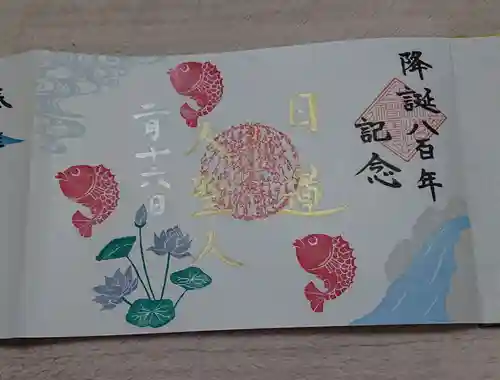 降誕八百年
記念
日蓮
大聖人
二月十六日